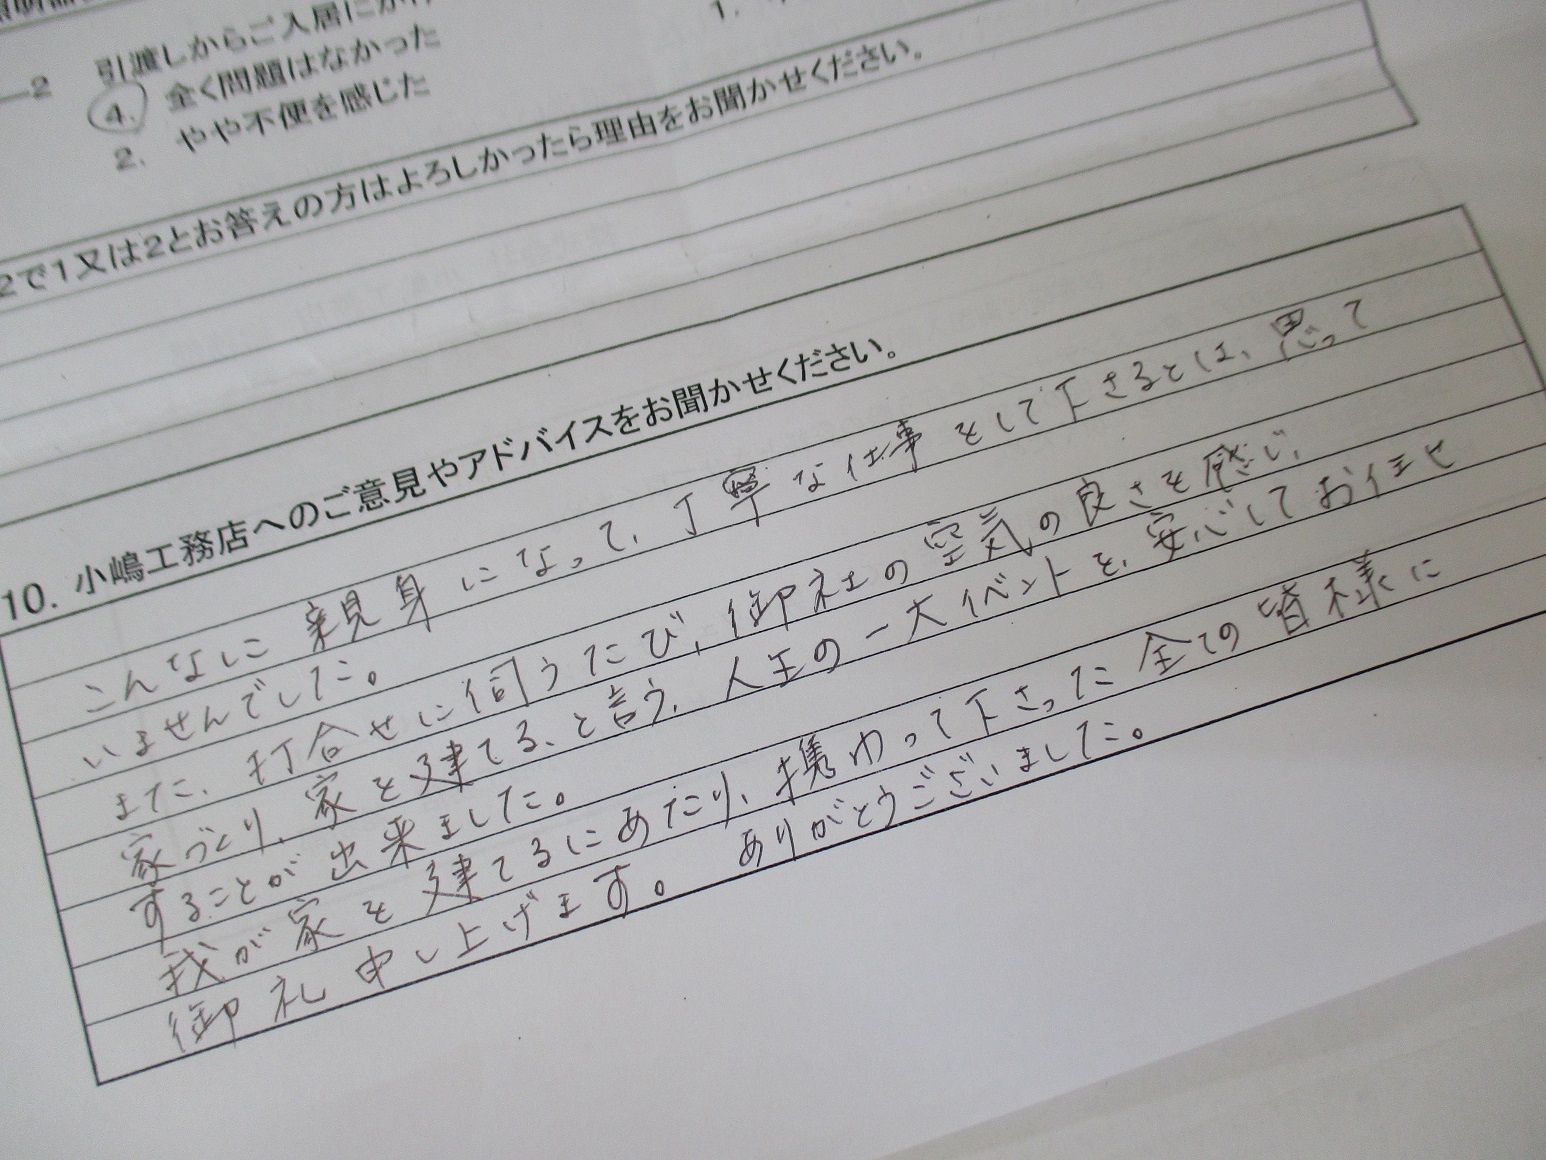 ―2 引渡しからご入居にか
4. 全く問題はなかった
1.
2. やや不便を感じた
2で1又は2とお答えの方はよろしかったら理由をお聞かせください。
10. 小嶋工務店へのご意見やアドバイスをお聞かせください。
こんなに親身になって、丁寧な仕事をして下さるとは、思って
いませんでした。
また、打合せに伺うたび、御社の空気の良さを感じ、
家づくり、家を建てる、と言う、人生の一大イベントを、安心してお任せ
することが出来ました。
我が家を建てるにあたり、携わって下さった全ての皆様に
御礼申し上げます。 ありがとうございました。